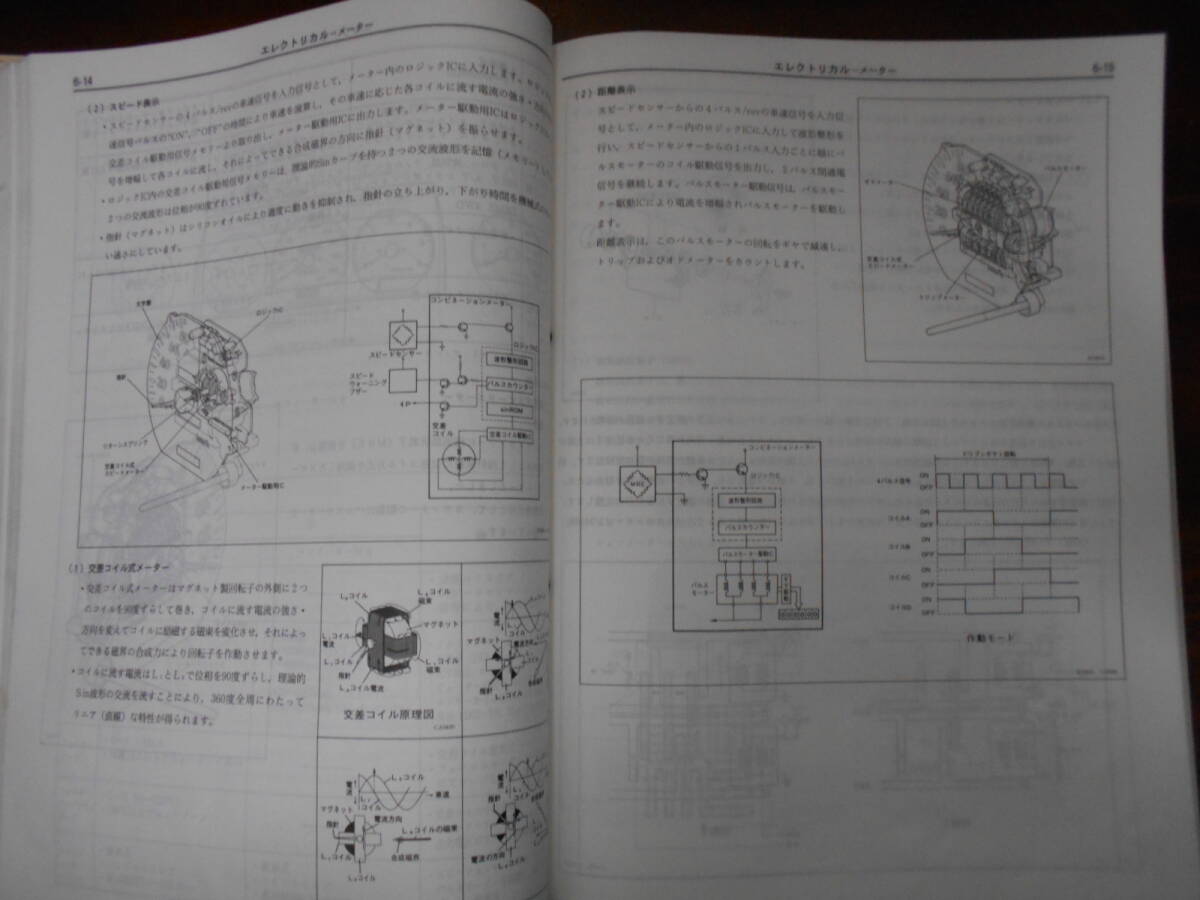 6-14
エレクトリカルーメーター
(2) スピード表示
・スピードセンサーの4パルス/revの車速信号を入力信号として，メーター内のロジックICに入力します。
速信号パルスの"ON"，"OFF"の時間により車速を演算し，その車速に応じた各コイルに流す電流の強さ・
交差コイル駆動用信号メモリーより取り出し，メーター駆動用ICに出力します。メーター駆動用ICは
号を増幅して各コイルに流し，それによってできる合成磁界の方向に指針（マグネット）を振らせます。
・ロジックIC内の交差コイル駆動用信号メモリーは，理論的Sinカーブを持つ2つの交流波形を記憶（メモリー）し
2つの交流波形は位相が90度ずれています。
・指針（マグネット）はシリコンオイルにより適度に動きを抑制され，指針の立ち上がり，下がり時間を
い速さにしています。
文字板
ロジックIC
指針
リターンスプリング
交差コイル式
スピードメーター
メーター駆動用IC
コンビネーションメーター
スピードセンサー
ロジックIC
波形整形回路
スピード
ウォーニング
ブザー
パルスカウンター
4P
sinROM
交差
コイル
交差コイル駆動IC
(1) 交差コイル式メーター
・交差コイル式メーターはマグネット製回転子の外側に2つ
のコイルを90度ずらして巻き，コイルに流す電流の強さ・
方向を変えてコイルに励磁する磁束を変化させ，それによっ
てできる磁界の合成力により回転子を作動させます。
・コイルに流す電流はL₁とL₂で位相を90度ずらし，理論的
Sin波形の交流を流すことにより，360度全周にわたって
リニア（直線）な特性が得られます。
マグネット
指針
交差コイル原理図
マグネット
電流
車速
マグネット
コイル
電流方向
指針
合成磁界
指針
電流の方向
エレクトリカルーメーター
6-15
(2) 距離表示
スピードセンサーからの4パルス/revの車速信号を入力信
号として，メーター内のロジックICに入力して波形整形を
行い，スピードセンサーからの1パルス入力ごとに順にパ
ルスモーターのコイル駆動信号を出力し，2パルス間通電
信号を継続します。パルスモーター駆動信号は，パルスモー
ター駆動ICにより電流を増幅されパルスモーターを駆動し
ます。
距離表示は，このパルスモーターの回転をギヤで減速し，
トリップおよびオドメーターをカウントします。
オドメーター
パルスモーター
交差コイル式
スピードメーター
トリップメーター
コンビネーションメーター
MRE
ロジックIC
波形整形回路
パルスカウンター
パルスモーター駆動IC
パルス
モーター
4パルス信号
ON
OFF
コイルA
ON
OFF
コイルB
ON
OFF
コイルC
ON
OFF
コイルD
ON
OFF
作動モード